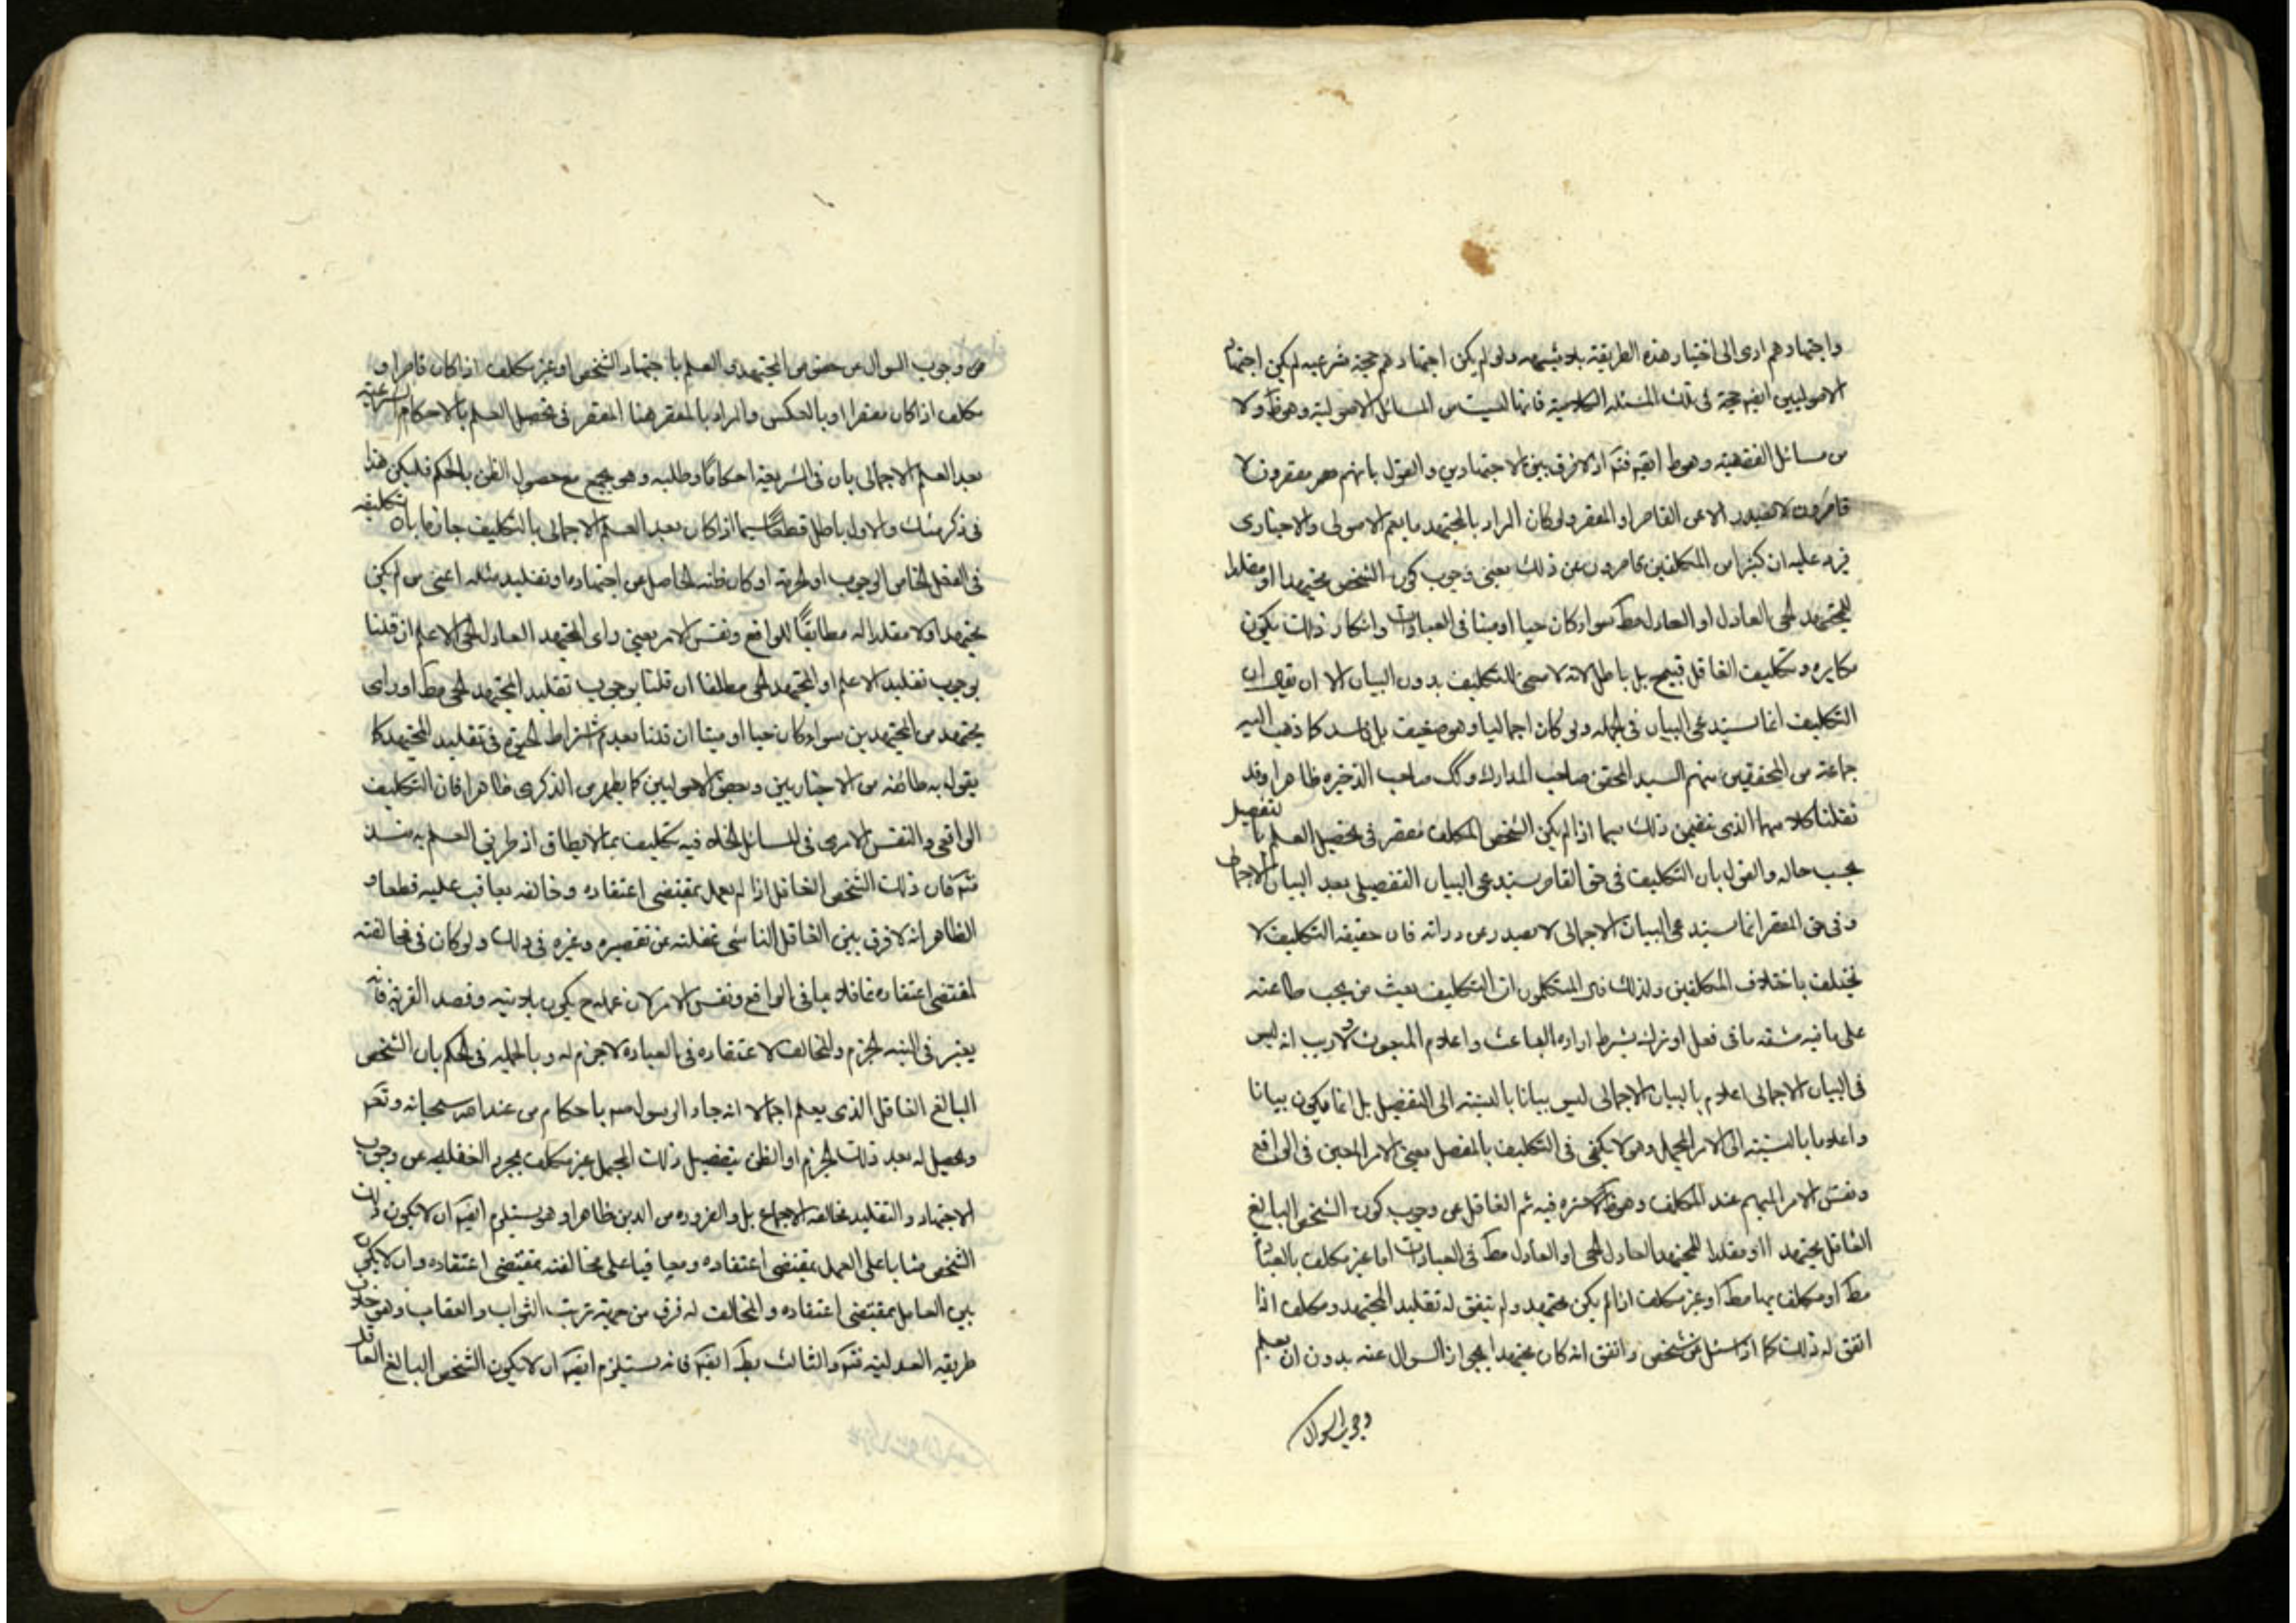 واجتهادهم ادى الى اختيار هذه الطريقة بلا شبهه ولو لم يكن اجتهادهم حجة شرعيه لم يكن اجتهاد
الاصوليين ايضا حجة فى تلك المسئله الكلامية فانها ليست من المسائل الاصولية وهو ظ ولا
من مسائل الفقهية وهو ظ ايضا فتم اذ لا فرق بين الاجتهادين والقول بانهم مقصرون لا
قاصرون لا يصدر الا عن القاصر او المقصر ولو كان المراد بالمجتهد ما يعم الاصولى والاخبارى
فيرد عليه ان كثيرا من المكلفين قاصرون عن ذلك يعنى وجوب كون الشخص مجتهدا او مقلدا
للمجتهد الحى العادل او العادل مط سواء كان حيا او ميتا فى العبادات وانكار ذلك يكون
مكابره وتكليف الغافل قبيح بل باطل لانه لا معنى للتكليف بدون البيان الا ان يقال ان
التكليف انما يستدعى البيان فى الجمله ولو كان اجماليا وهو ضعيف بل فاسد كما ذهب اليه
جماعة من المحققين منهم السيد المحقق صاحب المدارك وكك صاحب الذخيره ظاهرا وقد
نقلنا كلامهما الذى يتضمن ذلك سيما اذا لم يكن الشخص المكلف مقصر فى تحصيل العلم بالتفصيل
بحسب حاله والقول بان التكليف فى حق القاصر يستدعى البيان التفصيلى بعد البيان الاجمالى
وفى حق المقصر انما يستدعى البيان الاجمالى لا يصدر عن درايه فان حقيقه التكليف لا
تختلف باختلاف المكلفين ولذلك قال المتكلمون ان التكليف بعث من يجب طاعته
على ما فيه مشقه ما فى فعل او ترك بشرط اراده الباعث واعلام المبعوث ولا ريب انه ليس
فى البيان الاجمالى اعلام بالبيان الاجمالى ليس بيانا بالنسبة الى التفصيل بل انما يكون بيانا
واعلاما بالنسبة الى الامر المجمل وهو لا يكفى فى التكليف بالمفصل يعنى الامر المعين فى الواقع
ونفس الامر المبهم عند المكلف وهو ظ لا ستره فيه ثم الغافل عن وجوب كون الشخص البالغ
العاقل مجتهدا او مقلدا للمجتهد العادل الحى او العادل مط فى العبادات اما غير مكلف بالعبادات
مط او مكلف بها مط او غير مكلف اذا لم يكن مجتهد ولم يتفق له تقليد المجتهد ومكلف اذا
اتفق له ذلك كما اذا سئل عن شخص واتفق انه كان مجتهدا يجوز السوال عنه بدون ان يعلم
وجوب السوال
من وجوب السوال من خصوص المجتهد و العلم باجتهاد الشخص او غير مكلف اذا كان قاصرا و
مكلف اذا كان مقصرا او بالعكس والمراد بالمقصر هنا المقصر فى تحصيل العلم بالاحكام الشرعية
بعد العلم الاجمالى بان فى الشريعة احكاما وطلبه وهو يجمع مع حصول الظن بالحكم فليكن هذا
فى ذكر منك والاول باطل قطعا سيما اذا كان بعد العلم الاجمالى بالتكليف جازما بان تكليفه
فى الفعل الخاص الوجوب او الحرمة او كان ظنه الحاصل من اجتهاده او تقليد مثله اعنى من لم يكن
مجتهدا ولا مقلدا له مطابقا للواقع ونفس الامر يعنى راى المجتهد العادل الحى الاعلم ان قلنا
بوجوب تقليد الاعلم او المجتهد الحى مطلقا ان قلنا بوجوب تقليد المجتهد الحى مط او راى
مجتهد من المجتهدين سواء كان حيا او ميتا ان قلنا بعدم اشتراط الحيوة فى تقليد المجتهد كما
يقول به طائفه من الاخباريين وبعض الاصوليين كما يظهر من الذكرى ظاهرا فان التكليف
الواقعى والنفس الامرى فى المسائل الخلافيه تكليف بما لا يطاق اذ طريق العلم به منسد
فتم فان ذلك الشخص الغافل اذا لم يعمل بمقتضى اعتقاده وخالفه يعاقب عليه قطعا و
الظاهر انه لا فرق بين الغافل الناشى غفلته عن تقصيره وغيره فى ذلك ولو كان فى مخالفته
لمقتضى اعتقاده غافلا عما فى الواقع ونفس الامر لان عمله ح يكون بلا نيه وقصد القربة فانه
يعتبر فى النيه الجزم والمخالف لاعتقاده فى العباده لا جزم له وبالجمله فى الحكم بان الشخص
البالغ العاقل الذى يعلم اجمالا انه جاء الرسول ص باحكام من عند الله سبحانه وتعم
ويحصل له بعد ذلك الجزم او الظن بتفصيل ذلك المجمل غير مكلف بمجرد الغفله عن وجوب
الاجتهاد والتقليد مخالفه الاجماع بل والضروره من الدين ظاهرا وهو يستلزم ايضا ان لا يكون ذلك
الشخص مثابا على العمل بمقتضى اعتقاده ومعاقبا على مخالفته بمقتضى اعتقاده وان لا يكون
بين العامل بمقتضى اعتقاده والمخالف له فرق من جهة ترتب الثواب والعقاب وهو خلاف
طريقه العدليه فتم والثالث بط ايضا فانه يستلزم ايضا ان لا يكون الشخص البالغ العاقل